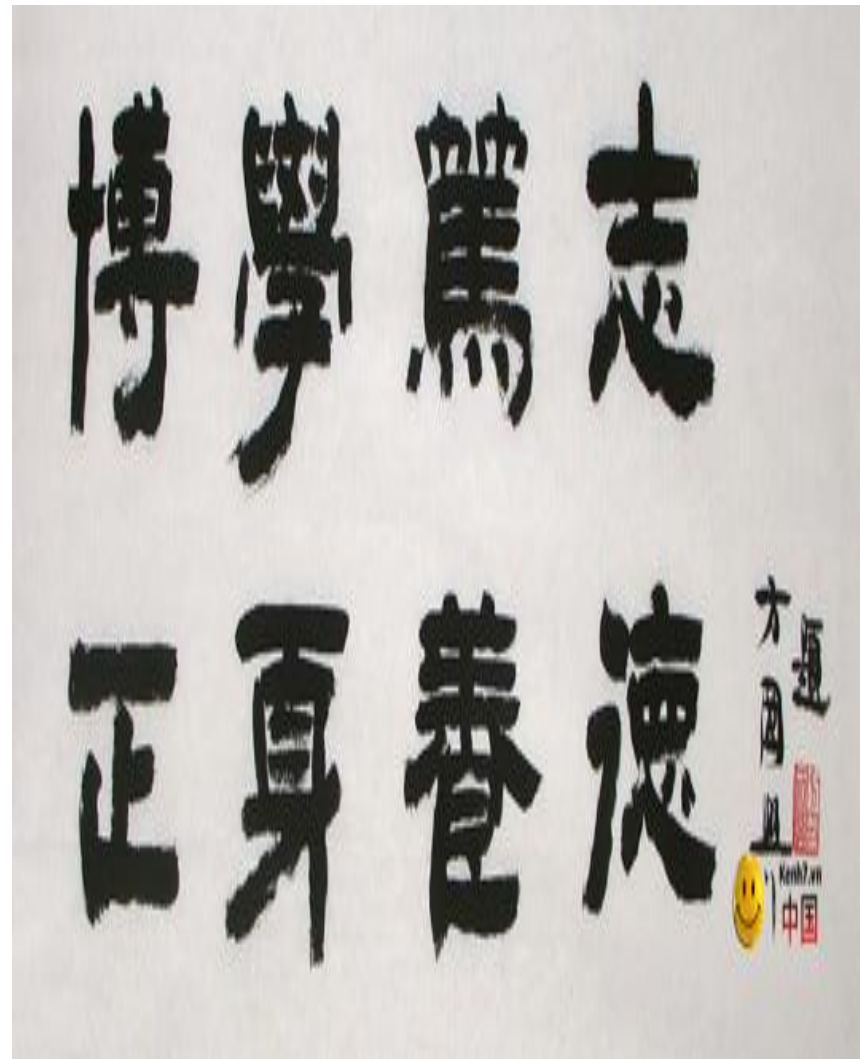 博學篤志
正身養德
方國興
題
Kenh7.vn
中国